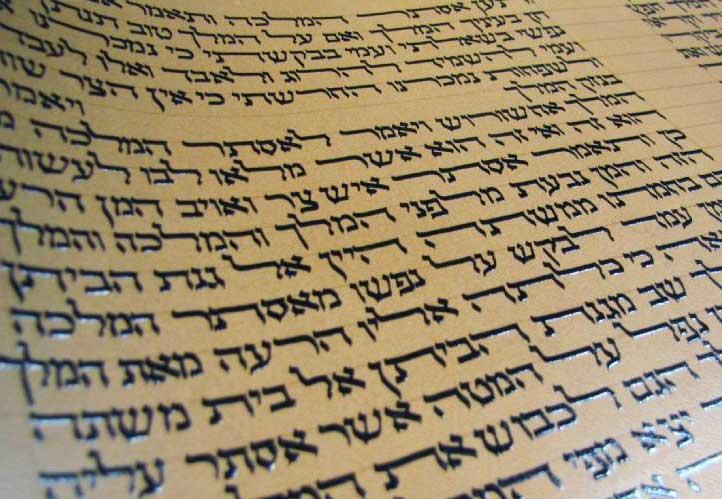 ותען אסתר המלכה ותאמר
חן בעיניך המלך ואם על המלך טוב תנתן
נפשי בשאלתי ועמי בבקשתי כי נמכרנו
ועמי להשמיד להרוג ולאבד ואלו
ולשפחות נמכרנו החרשתי כי אין הצר שוה
בנזק המלך ויאמר
המלך אחשורוש ויאמר לאסתר המלכה
הוא זה ואי זה הוא אשר מלאו לבו לעשות
כן ותאמר אסתר איש צר ואויב המן הרע
הזה והמן נבעת מלפני המלך והמלכה והמלך
בחמתו ממשתה היין אל גנת הביתן
עמד לבקש על נפשו מאסתר המלכה
ראה כי כלתה אליו הרעה מאת המלך
שב מגנת הביתן אל בית משתה
נפל על המטה אשר אסתר עליה
הגם לכבוש את
יצא מפי